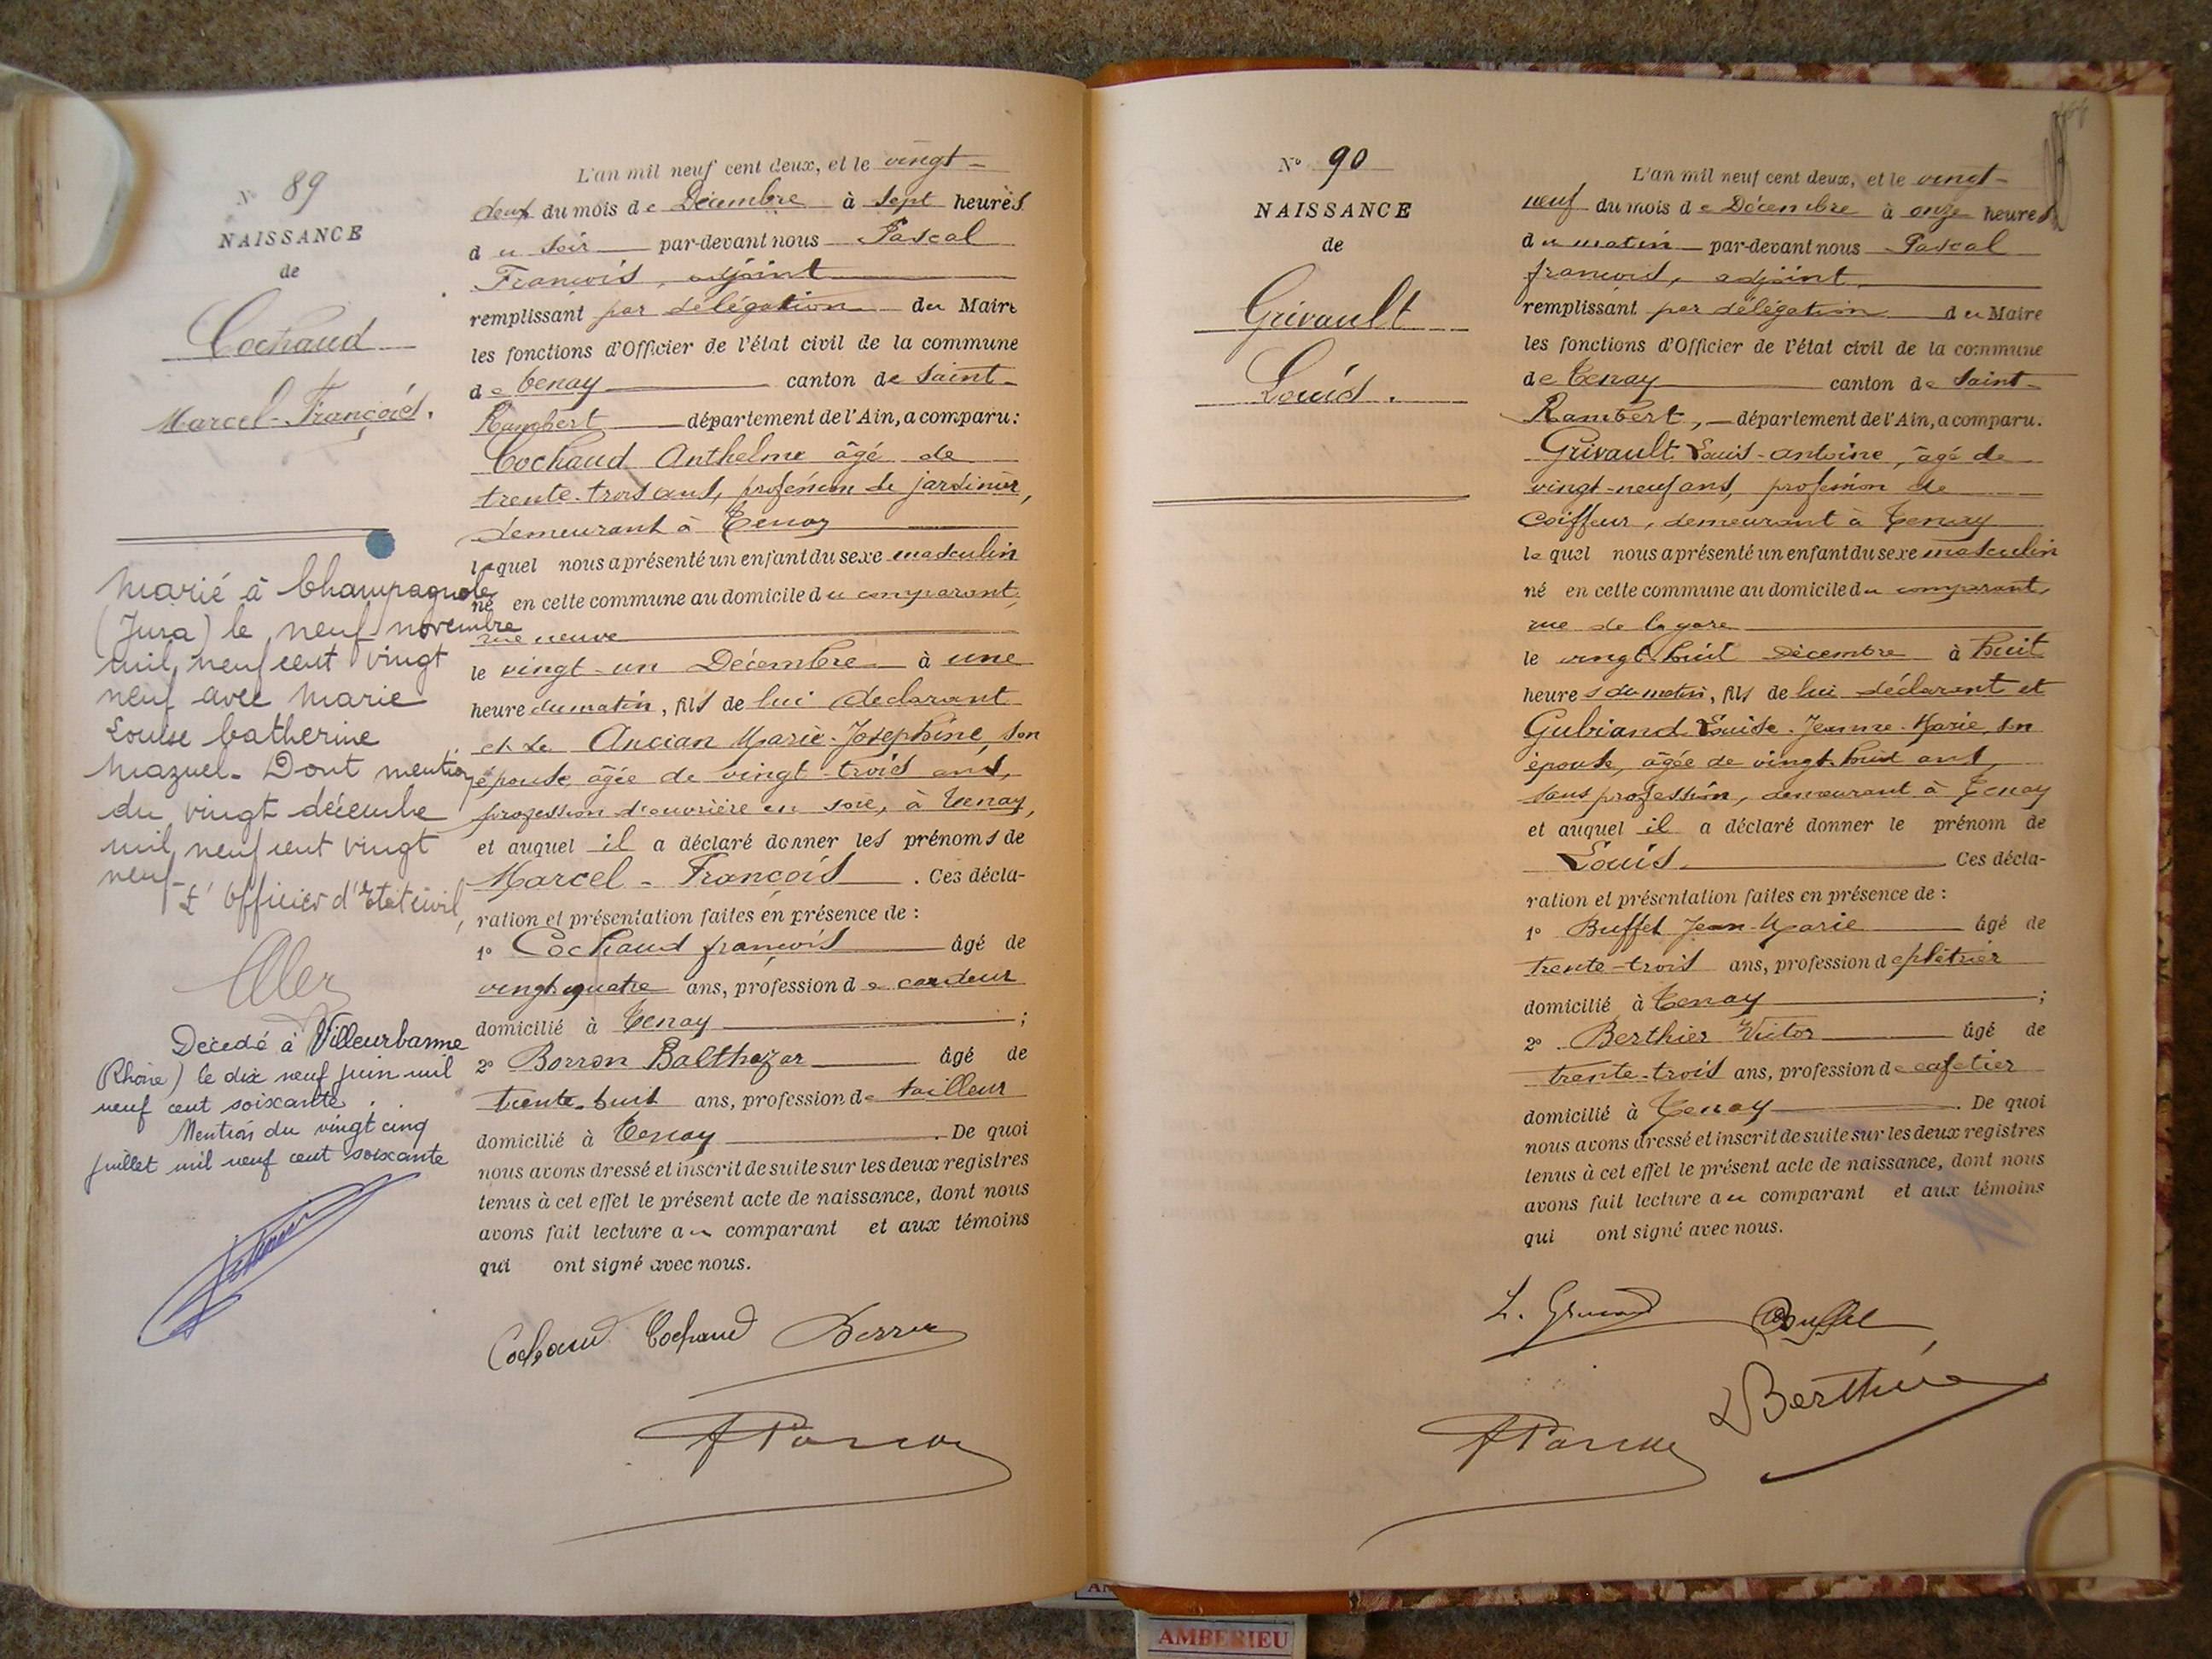 N° 89
NAISSANCE
de
Cochaud
Marcel-François.
Marié à Champagnole
(Jura) le neuf novembre
mil neuf cent vingt
neuf avec Marie
Louise Catherine
Mazuel. Dont mention
du vingt décembre
mil neuf cent vingt
neuf.
L'Officier d'Etat civil,
Décédé à Villeurbanne
(Rhône) le dix neuf juin mil
neuf cent soixante.
Mention du vingt cinq
juillet mil neuf cent soixante
L'an mil neuf cent deux, et le vingt-
deux du mois de Décembre à sept heures
du soir par-devant nous Pascal
François, adjoint
remplissant par délégation du Maire
les fonctions d'Officier de l'état civil de la commune
de Tenay canton de Saint-
Rambert département de l'Ain, a comparu:
Cochaud Anthelme âgé de
trente-trois ans, profession de jardinier,
demeurant à Tenay
lequel nous a présenté un enfant du sexe masculin
né en cette commune au domicile du comparant,
rue neuve
le vingt-un Décembre à une
heure du matin, fils de lui declarant
et de Ancian Marie-Josephine, son
épouse, âgée de vingt-trois ans,
profession d'ouvrière en soie, à Tenay,
et auquel il a déclaré donner les prénoms de
Marcel-François. Ces décla-
ration et présentation faites en présence de :
1° Cochaud françois âgé de
vingt quatre ans, profession de cardeur
domicilié à Tenay ;
2° Borron Balthazar âgé de
trente-huit ans, profession de tailleur
domicilié à Tenay. De quoi
nous avons dressé et inscrit de suite sur les deux registres
tenus à cet effet le présent acte de naissance, dont nous
avons fait lecture au comparant et aux témoins
qui ont signé avec nous.
Cochaud Cochaud
N° 90
NAISSANCE
de
Grivault
Louis.
L'an mil neuf cent deux, et le vingt-
neuf du mois de Décembre à onze heures
du matin par-devant nous Pascal
françois, adjoint
remplissant par délégation du Maire
les fonctions d'Officier de l'état civil de la commune
de Tenay canton de Saint-
Rambert, département de l'Ain, a comparu.
Grivault Louis-antoine, âgé de
vingt-neuf ans, profession de
coiffeur, demeurant à Tenay
lequel nous a présenté un enfant du sexe masculin
né en cette commune au domicile du comparant,
rue de la gare
le vingt-huit Décembre à huit
heures du matin, fils de lui déclarant et
Louise-Jeanne-Marie, son
épouse, âgée de vingt-huit ans,
sans profession, demeurant à Tenay
et auquel il a déclaré donner le prénom de
Louis Ces décla-
ration et présentation faites en présence de :
1° Buffet Jean-Marie âgé de
trente-trois ans, profession de plâtrier
domicilié à Tenay ;
2° Berthier Victor âgé de
trente-trois ans, profession de cafetier
domicilié à Tenay. De quoi
nous avons dressé et inscrit de suite sur les deux registres
tenus à cet effet le présent acte de naissance, dont nous
avons fait lecture au comparant et aux témoins
qui ont signé avec nous.
AMBERIEU